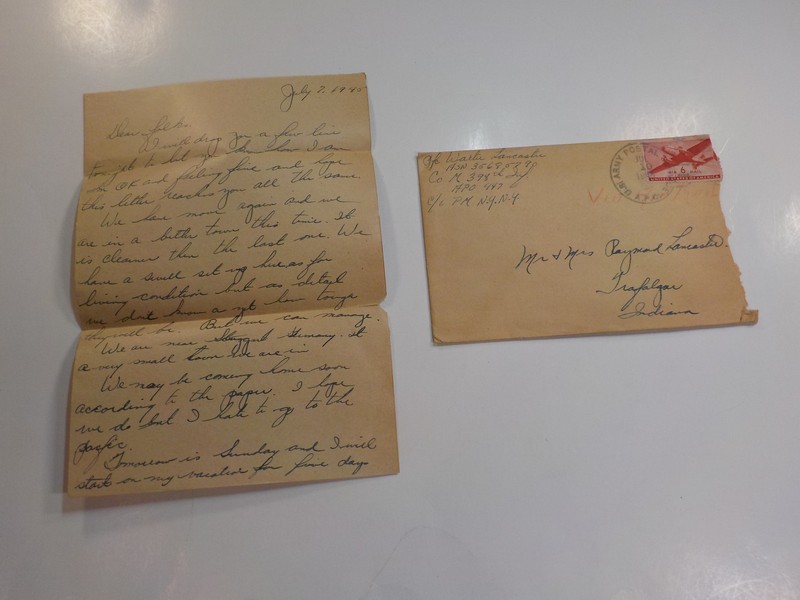 July 7, 1945
Dear Folks.
I will drop you a few line
to let you know how I am
I'm OK and feeling fine and hope
this letter reaches you all the same.
We have move again and we
are in a better town this time. It
is cleaner then the last one. We
have a small set up here as for
living condition but as detail
we dont know a yet how tough
they will be. But we can manage.
We are near Germany. It
a very small town we are in
We may be coming home soon
according to the paper. I hope
we do but I hate to go to the
pacific.
Tomorrow is Sunday and I will
start on my vacation for five days
Lancaster
Co M 398th Inf
APO 447
c/o PM. N.Y. N.Y.
U.S. ARMY POSTAL
6¢
UNITED STATES OF AMERICA
Mr & Mrs Raymond Lancaster.
Trafalgar
Indiana